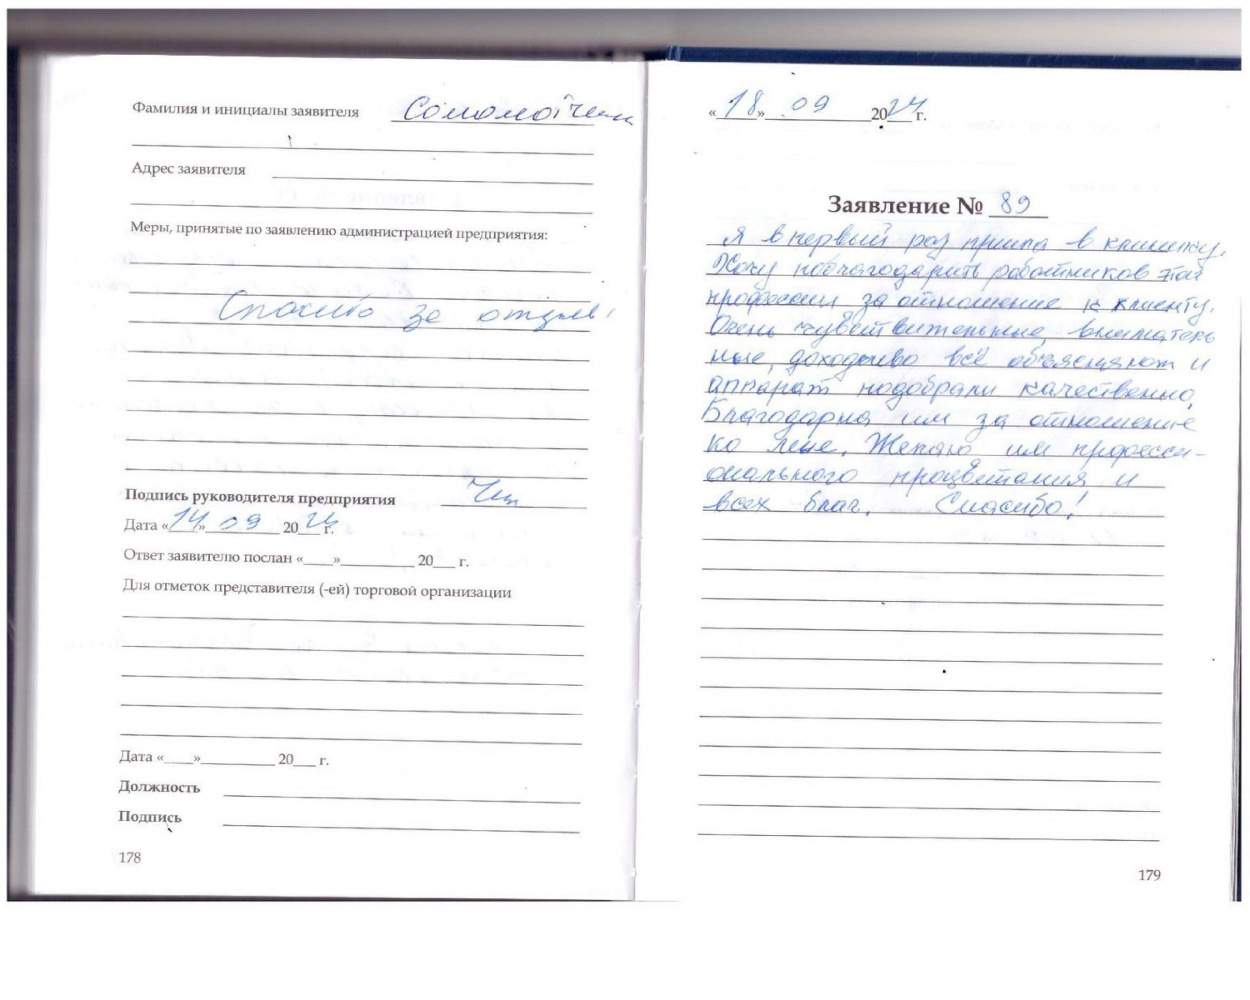 Фамилия и инициалы заявителя
Адрес заявителя
Меры, принятые по заявлению администрацией предприятия:
Спасибо за отзыв!
Подпись руководителя предприятия
Дата «14» 09 2024 г.
Ответ заявителю послан «____»__________ 20___ г.
Для отметок представителя (-ей) торговой организации
Дата «____»__________ 20___ г.
Должность
Подпись
178
«18» 09 2024 г.
Заявление № 89
Я в первый раз пришла в клинику.
Хочу поблагодарить работников этой
профессии за отношение к клиенту.
Очень чувствительные, вниматель
ные, доходчиво всё объясняют и
аппарат подобрали качественно.
Благодарна им за отношение
ко мне. Желаю им професси-
онального процветания и
всех благ. Спасибо!
179